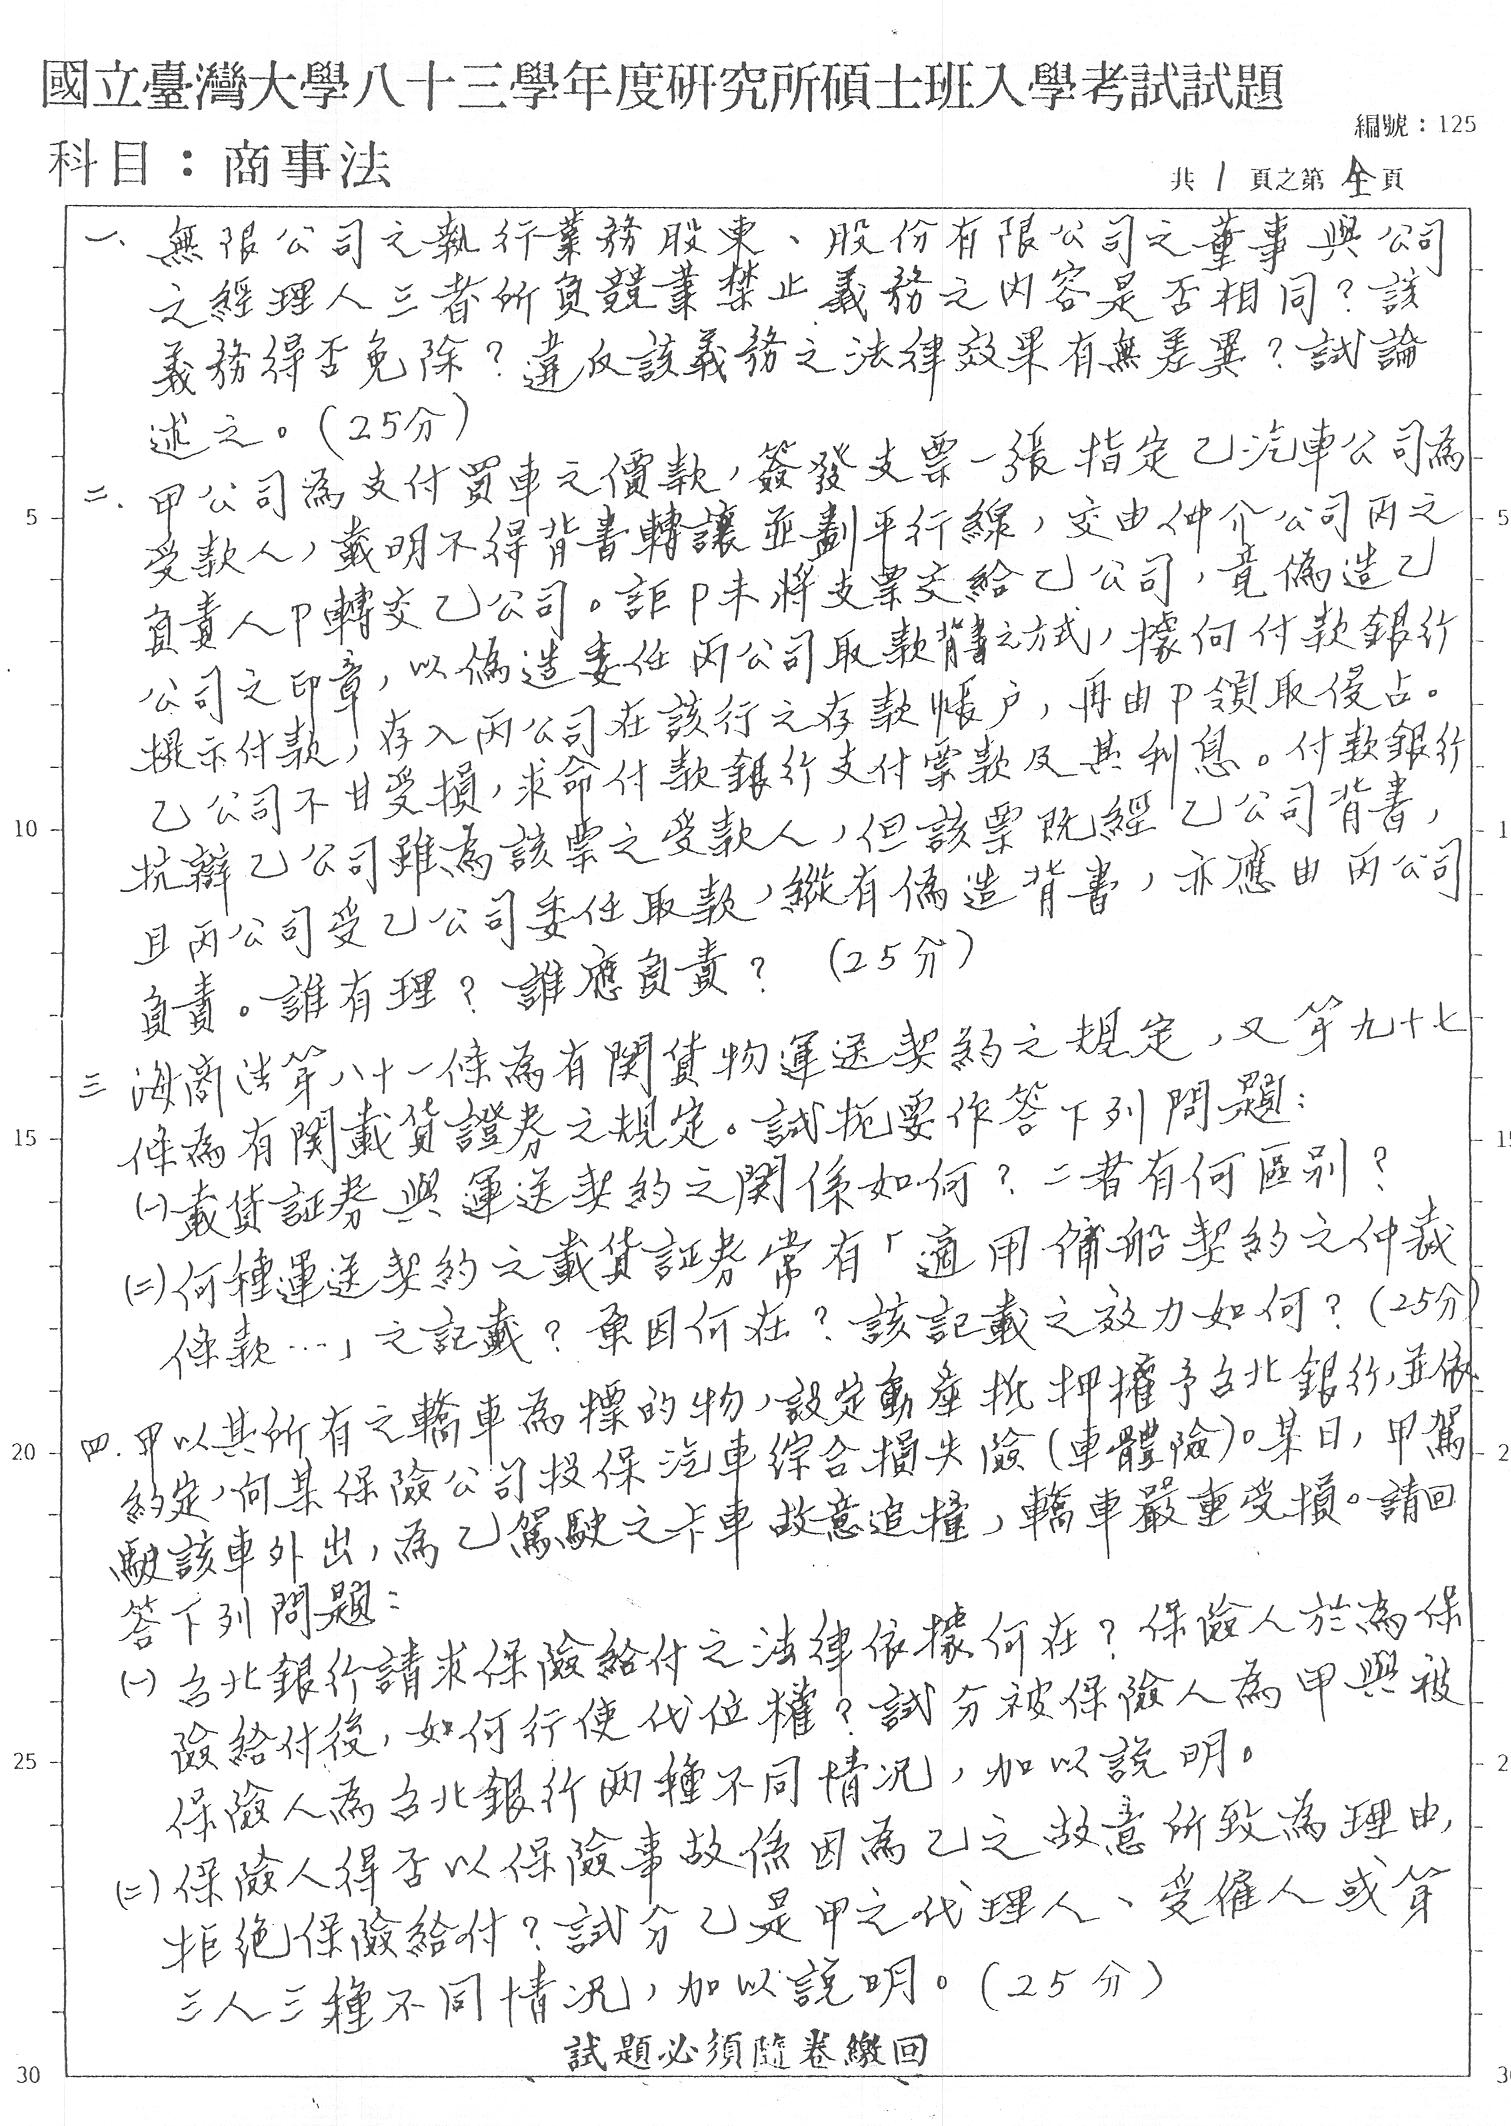 國立臺灣大學八十三學年度研究所碩士班入學考試試題
編號：125
科目：商事法
共 1 頁之第 全 頁
一、無限公司之執行業務股東、股份有限公司之董事與公司
之經理人三者所負競業禁止義務之內容是否相同？該
義務得否免除？違反該義務之法律效果有無差異？試論
述之。(25分)
二、甲公司為支付買車之價款，簽發支票一張指定乙汽車公司為
5 受款人，載明不得背書轉讓並劃平行線，交由仲介公司丙之 5
負責人P轉交乙公司。詎P未將支票交給乙公司，竟偽造乙
公司之印章，以偽造委任丙公司取款背書之方式，據向付款銀行
提示付款，存入丙公司在該行之存款帳戶，再由P領取侵占。
乙公司不甘受損，求命付款銀行支付票款及其利息。付款銀行
10 抗辯乙公司雖為該票之受款人，但該票既經乙公司背書， 1
且丙公司受乙公司委任取款，縱有偽造背書，亦應由丙公司
負責。誰有理？誰應負責？ (25分)
三 海商法第八十一條為有関貨物運送契約之規定，又第九十七
15 條為有関載貨證券之規定。試扼要作答下列問題： 15
㈠載貨証券與運送契約之関係如何？二者有何區别？
㈡何種運送契約之載貨証券常有「適用傭船契約之仲裁
條款…」之記載？原因何在？該記載之效力如何？(25分)
四.甲以其所有之轎車為標的物，設定動產抵押權予台北銀行，並依
20 約定，向某保險公司投保汽車綜合損失險(車體險)。某日，甲駕 2
駛該車外出，為乙駕駛之卡車故意追撞，轎車嚴重受損。請回
答下列問題：
㈠台北銀行請求保險給付之法律依據何在？保險人於為保
險給付後，如何行使代位權？試分被保險人為甲與被
25 保險人為台北銀行兩種不同情況，加以說明。 2
㈡保險人得否以保險事故係因為乙之故意所致為理由，
拒絕保險給付？試分乙是甲之代理人、受僱人或第
三人三種不同情況，加以說明。(25分)
試題必須隨卷繳回
30 3